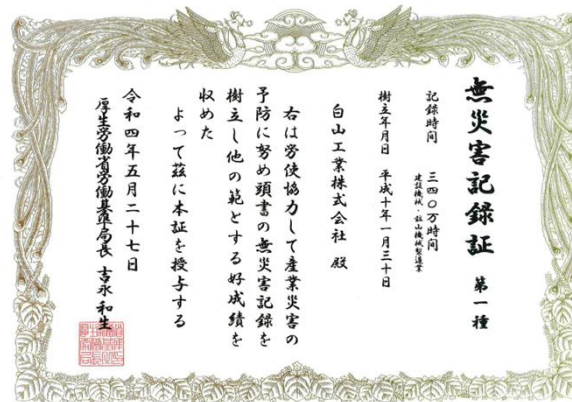 無災害記録証 第一種
記録時間 三四〇万時間
建設機械・鉱山機械製造業
樹立年月日 平成十年一月三十日
白山工業株式会社 殿
右は労使協力して産業災害の
予防に努め頭書の無災害記録を
樹立し他の範とする好成績を
収めた
よって茲に本証を授与する
令和四年五月二十七日
厚生労働省労働基準局長 吉永和生